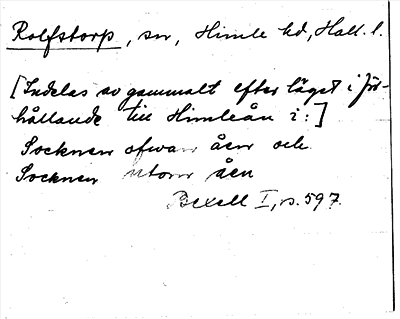 Rolfstorp, sn, Himle hd, Hall. l.
[Indelas av gammalt efter läget i för-
hållande till Himleån i:]
Socknen ofwan åen och
Socknen utom åen
Bexell I, s. 597.